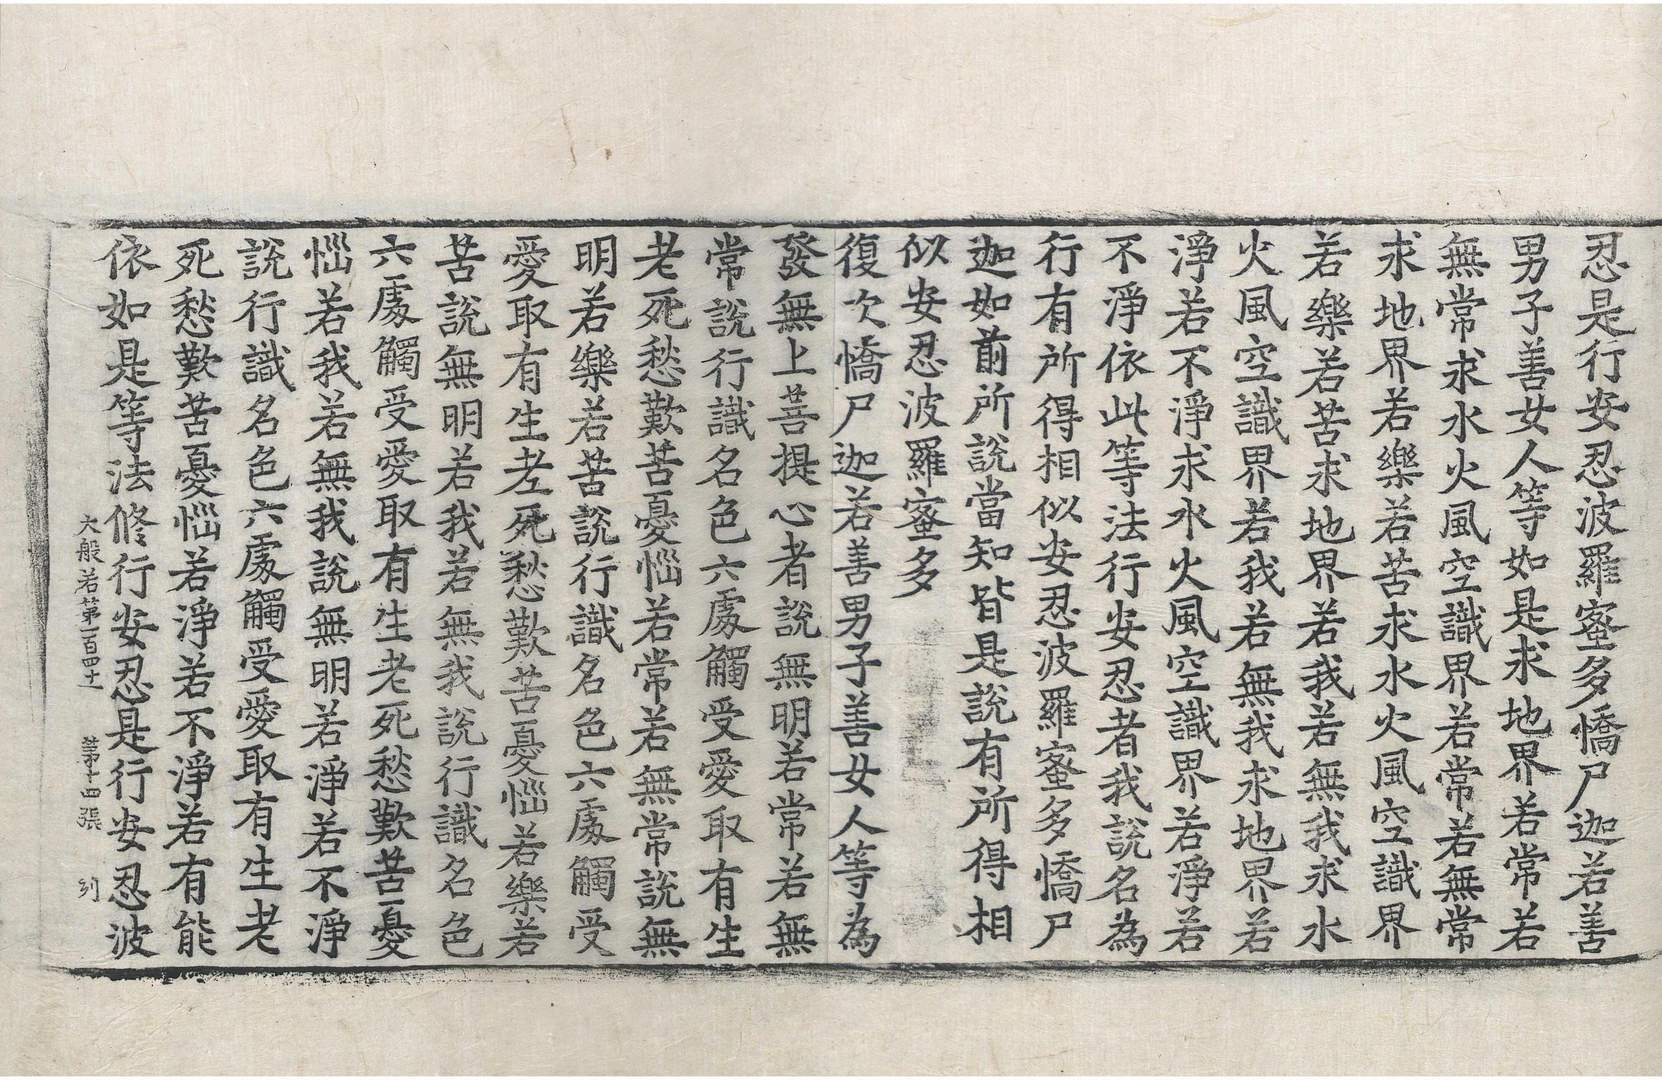 忍是行安忍波羅蜜多憍尸迦若善
男子善女人等如是求地界若常若
無常求水火風空識界若常若無常
求地界若樂若苦求水火風空識界
若樂若苦求地界若我若無我求水
火風空識界若我若無我求地界若
淨若不淨求水火風空識界若淨若
不淨依此等法行安忍者我說名為
行有所得相似安忍波羅蜜多憍尸
迦如前所說當知皆是說有所得相
似安忍波羅蜜多
復次憍尸迦若善男子善女人等為
發無上菩提心者說無明若常若無
常說行識名色六處觸受愛取有生
老死愁歎苦憂惱若常若無常說無
明若樂若苦說行識名色六處觸受
愛取有生老死愁歎苦憂惱若樂若
苦說無明若我若無我說行識名色
六處觸受愛取有生老死愁歎苦憂
惱若我若無我說無明若淨若不淨
說行識名色六處觸受愛取有生老
死愁歎苦憂惱若淨若不淨若有能
依如是等法修行安忍是行安忍波
大般若第一百四十一 第十四張 列